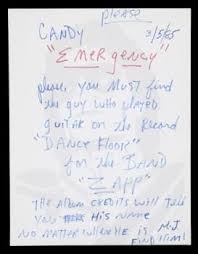 please
CANDY 3/5/85
"EMERgency"
please, you Must find
the guy who played
guitar on the Record
"DANCE Floor"
for the BAND
"ZAPP"
THE Album credits will tell
you His name
NO MATTER WHERE HE is MJ
FIND Him!